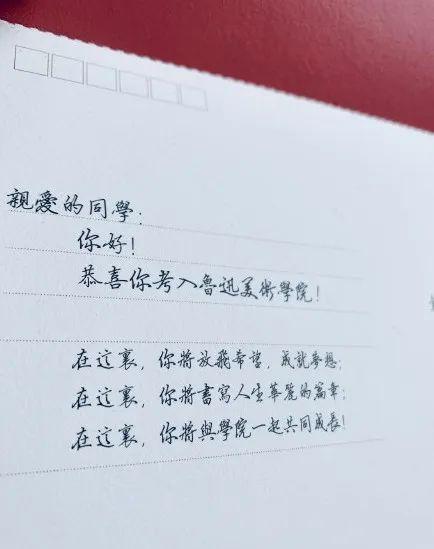 親愛的同學：
你好！
恭喜你考入魯迅美術學院！
在這裏，你將放飛希望，成就夢想；
在這裏，你將書寫人生華麗的篇章；
在這裏，你將與學院一起共同成長！